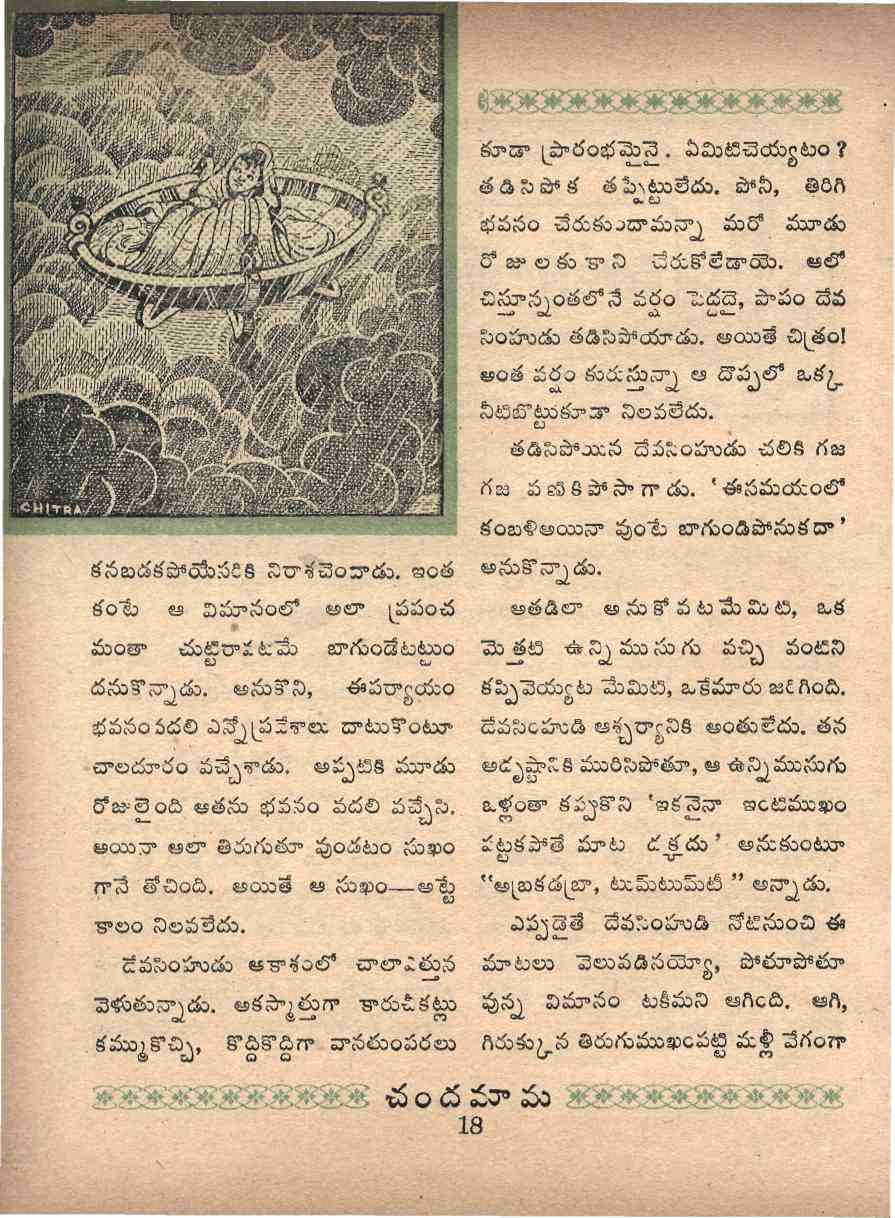 CHITRA
కనబడకపోయేసరికి నిరాశచెందాడు. ఇంత
కంటే ఆ విమానంలో అలా ప్రపంచ
మంతా చుట్టిరావటమే బాగుండేటట్టుం
దనుకొన్నాడు. అనుకొని, ఈపర్యాయం
భవనంవదలి ఎన్నోప్రదేశాలు దాటుకొంటూ
చాలదూరం వచ్చేశాడు. అప్పటికి మూడు
రోజులైంది ఆతను భవనం వదలి వచ్చేసి.
అయినా ఆలా తిరుగుతూ వుండటం సుఖం
గానే తోచింది. అయితే ఆ సుఖం—అట్టే
కాలం నిలవలేదు.
దేవసింహుడు ఆకాశంలో చాలాఎత్తున
వెళుతున్నాడు. అకస్మాత్తుగా కారుచీకట్లు
కమ్ముకొచ్చి, కొద్దికొద్దిగా వానతుంపరలు
కూడా ప్రారంభమైనై. ఏమిటిచెయ్యటం?
తడిసిపోక తప్పేట్టులేదు. పోనీ, తిరిగి
భవనం చేరుకుందామన్నా మరో మూడు
రోజులకుకాని చేరుకోలేడాయె. ఆలో
చిస్తూన్నంతలోనే వర్షం పెద్దదై, పాపం దేవ
సింహుడు తడిసిపోయాడు. అయితే చిత్రం!
అంత వర్షం కురుస్తున్నా ఆ దొప్పలో ఒక్క
నీటిబొట్టుకూడా నిలవలేదు.
తడిసిపోయిన దేవసింహుడు చలికి గజ
గజ వణికిపోసాగాడు. ‘ఈసమయంలో
కంబళిఅయినా వుంటే బాగుండిపోనుకదా’
అనుకొన్నాడు.
అతడిలా అనుకోవటమేమిటి, ఒక
మెత్తటి ఉన్నిముసుగు వచ్చి వంటిని
కప్పివెయ్యట మేమిటి, ఒకేమారు జరిగింది.
దేవసింహుడి ఆశ్చర్యానికి అంతులేదు. తన
అదృష్టానికి మురిసిపోతూ, ఆ ఉన్నిముసుగు
ఒళ్లంతా కప్పుకొని ‘ఇకనైనా ఇంటిముఖం
పట్టకపోతే మాట దక్కదు’ అనుకుంటూ
“అబ్రకడబ్రా, టుమ్‌టుమ్‌టీ” అన్నాడు.
ఎప్పుడైతే దేవసింహుడి నోటినుంచి ఈ
మాటలు వెలువడినయ్యో, పోతూపోతూ
వున్న విమానం టకీమని ఆగింది. ఆగి,
గిరుక్కున తిరుగుముఖంపట్టి మళ్లీ వేగంగా
చందమామ
18